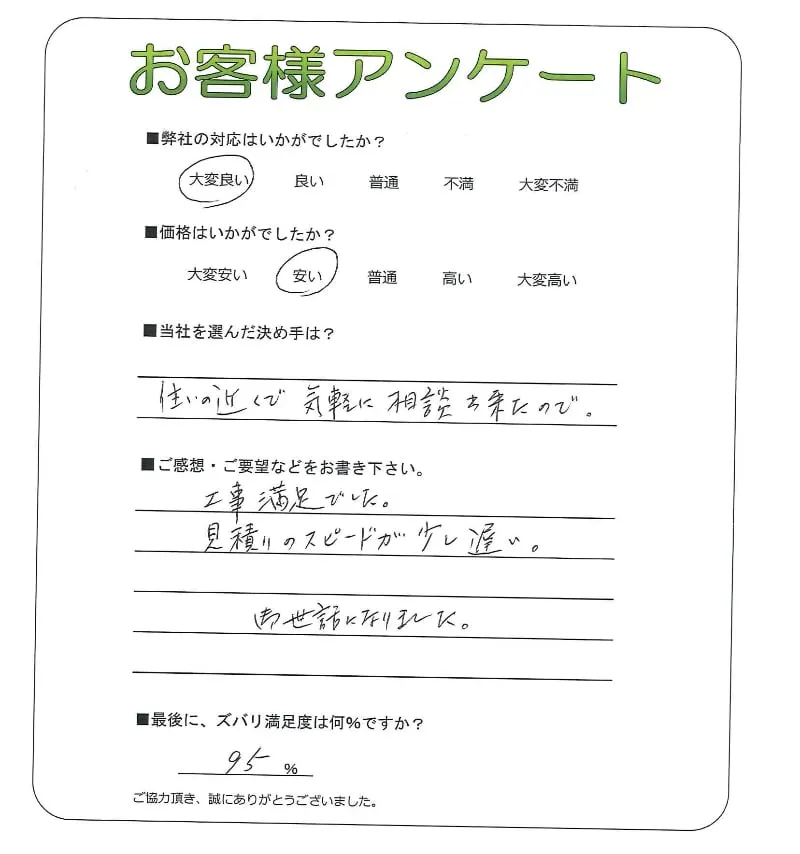 お客様アンケート
■弊社の対応はいかがでしたか？
大変良い 良い 普通 不満 大変不満
■価格はいかがでしたか？
大変安い 安い 普通 高い 大変高い
■当社を選んだ決め手は？
住いの近くで 気軽に 相談 出来たので。
■ご感想・ご要望などをお書き下さい。
工事満足でした。
見積りのスピードが少し遅い。
御世話になりました。
■最後に、ズバリ満足度は何％ですか？
95 ％
ご協力頂き、誠にありがとうございました。